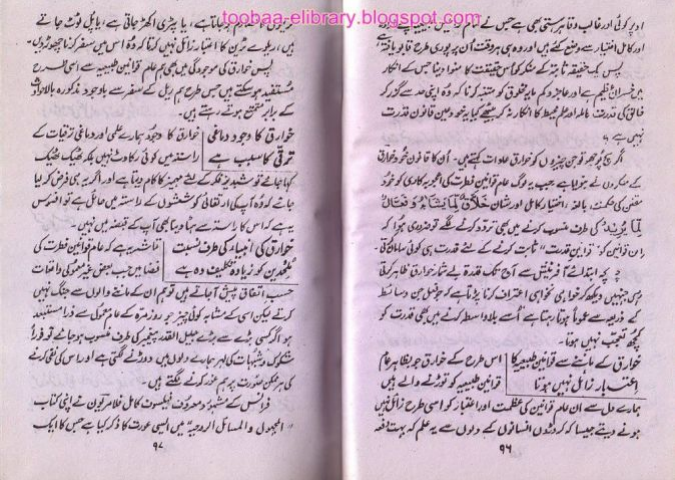 toobaa-elibrary.blogspot.com
اوپر کوئی اور غالب وقاہر ہستی بھی ہے جس نے تمام
اور کامل اختیار سے وضع کئے ہیں اور وہ ہی ہر وقت اُن پر پوری طرح قابو یافتہ ہے
پس یک حقیقہ ثابتہ کے منکر کو اس حقیقت کا منوا دینا جس کے انکار
میں خسران عظیم ہے اور عاجز و کم مایہ مخلوق کو متنبہ کرنا کہ وہ اپنی حد سے گزر کر
خالق کی قدرت کاملہ اور علم محیط کا انکار نہ کر بیٹھے کیا یہ خود عین قانون قدرت
نہیں ہے؟
اگر سچ پوچھو تو جن چیزوں کو خوارق عادات کہتے ہیں۔ اُن کا قانون خود خوارق
کے منکروں نے بنوایا ہے جب یہ لوگ عام قوانین فطرت کی انجیریکاری کو خود
مقنن کی حکمت بالغہ، اختیار کامل اور شان خَلَّاقٌ لِّمَا يَشَاءُ وَفَعَّالٌ
لِّمَا يُرِيدُ کی طرف منسوب کرنے میں بھی تردد کرنے لگے تو ضروری ہوا کہ
ان قوانین کو "قوانین قدرت" ثابت کرنے کے لئے قدرت ہی کوئی سامان کرتی۔
چنانچہ ابتدائے آفرینش سے آج تک قدرۃ بے شمار خوارق ظاہر کرتی
رہی جنہیں دیکھ کر خواہی نخواہی اعتراف کرنا پڑتا ہے کہ جو فعل جن وسائط
کے ذریعہ سے عموماً ہوتا رہتا ہے اُسے بلا واسطہ کرنے میں بھی قدرت کو
کچھ تعجب نہیں ہوتا۔
خوارق کے ماننے سے قوانین طبیعیہ کا اعتبار زائل نہیں ہوتا
اس طرح کے خوارق جو بظاہر عام
قوانین طبیعیہ کو توڑنے والے ہیں
ہمارے دل سے ان عام قوانین کی عظمت اور اعتبار کو اسی طرح زائل نہیں
ہونے دیتے جیسا کہ کروڑوں انسانوں کے دلوں سے یہ علم کہ بہت دفعہ
۹۶
جاتا ہے، یا پٹری اُکھڑ جاتی ہے، یا پل ٹوٹ جاتے
ہیں، ریلوے ٹرین کا اعتبار زائل نہیں کرتا کہ وہ اس میں سفر کرنا چھوڑ دیں۔
پس خوارق کی موجودگی میں بھی ہم عام قوانین طبیعیہ سے اسی طرح
مستفید ہو سکتے ہیں جس طرح ہم ریل کے سفر سے باوجود مذکورہ بالا
کے برابر متمتع ہوتے رہتے ہیں۔
خوارق کا وجود دماغی ترقی کا سبب ہے
خوارق کا وجود ہمارے علمی اور دماغی ترقیات کے
راستہ میں کوئی رکاوٹ نہیں بلکہ ٹھیک ٹھیک
کہا جائے تو شبدیز فکر کے لئے مہمیز کا کام دیتا ہے اور اگر یہ بھی فرض کر لیا
جائے کہ وہ آپ کی ارتقائی کوششوں کے راستہ میں حائل ہے تو افسوس
یہ ہے کہ اس کا راستہ سے ہٹا دینا بھی آپ کے قبضہ میں نہیں۔
خوارق کی انبیاء کی طرف نسبت ملحدین کو زیادہ تکلیف دہ ہے
تماشہ یہ ہے کہ عام قوانین فطرت کی
فضا میں جب بعض غیر معمولی واقعات
حسب اتفاق پیش آجاتے ہیں تو ہم ان کے ماننے والوں سے جنگ نہیں
کرتے لیکن اسی کے مشابہ کوئی چیز جو روزمرہ کے عام معمول سے ذرا مستبعد
ہو اگر کسی بڑے سے بڑے جلیل القدر پیغمبر کی طرف منسوب ہو جائے تو فوراً
شکوک و شبہات کی لہر ہمارے دلوں میں دوڑنے لگتی ہے اور اس کی نفی کرنے
کی ہر ممکن صورت پر ہم غور کرنے لگتے ہیں۔
فرانس کے مشہور و معروف فیلسوف کامل فلامریون نے اپنی کتاب
المجهول والمسائل الروحیہ میں ایسی عورت کا ذکر کیا ہے جس کا ایک
۹۷